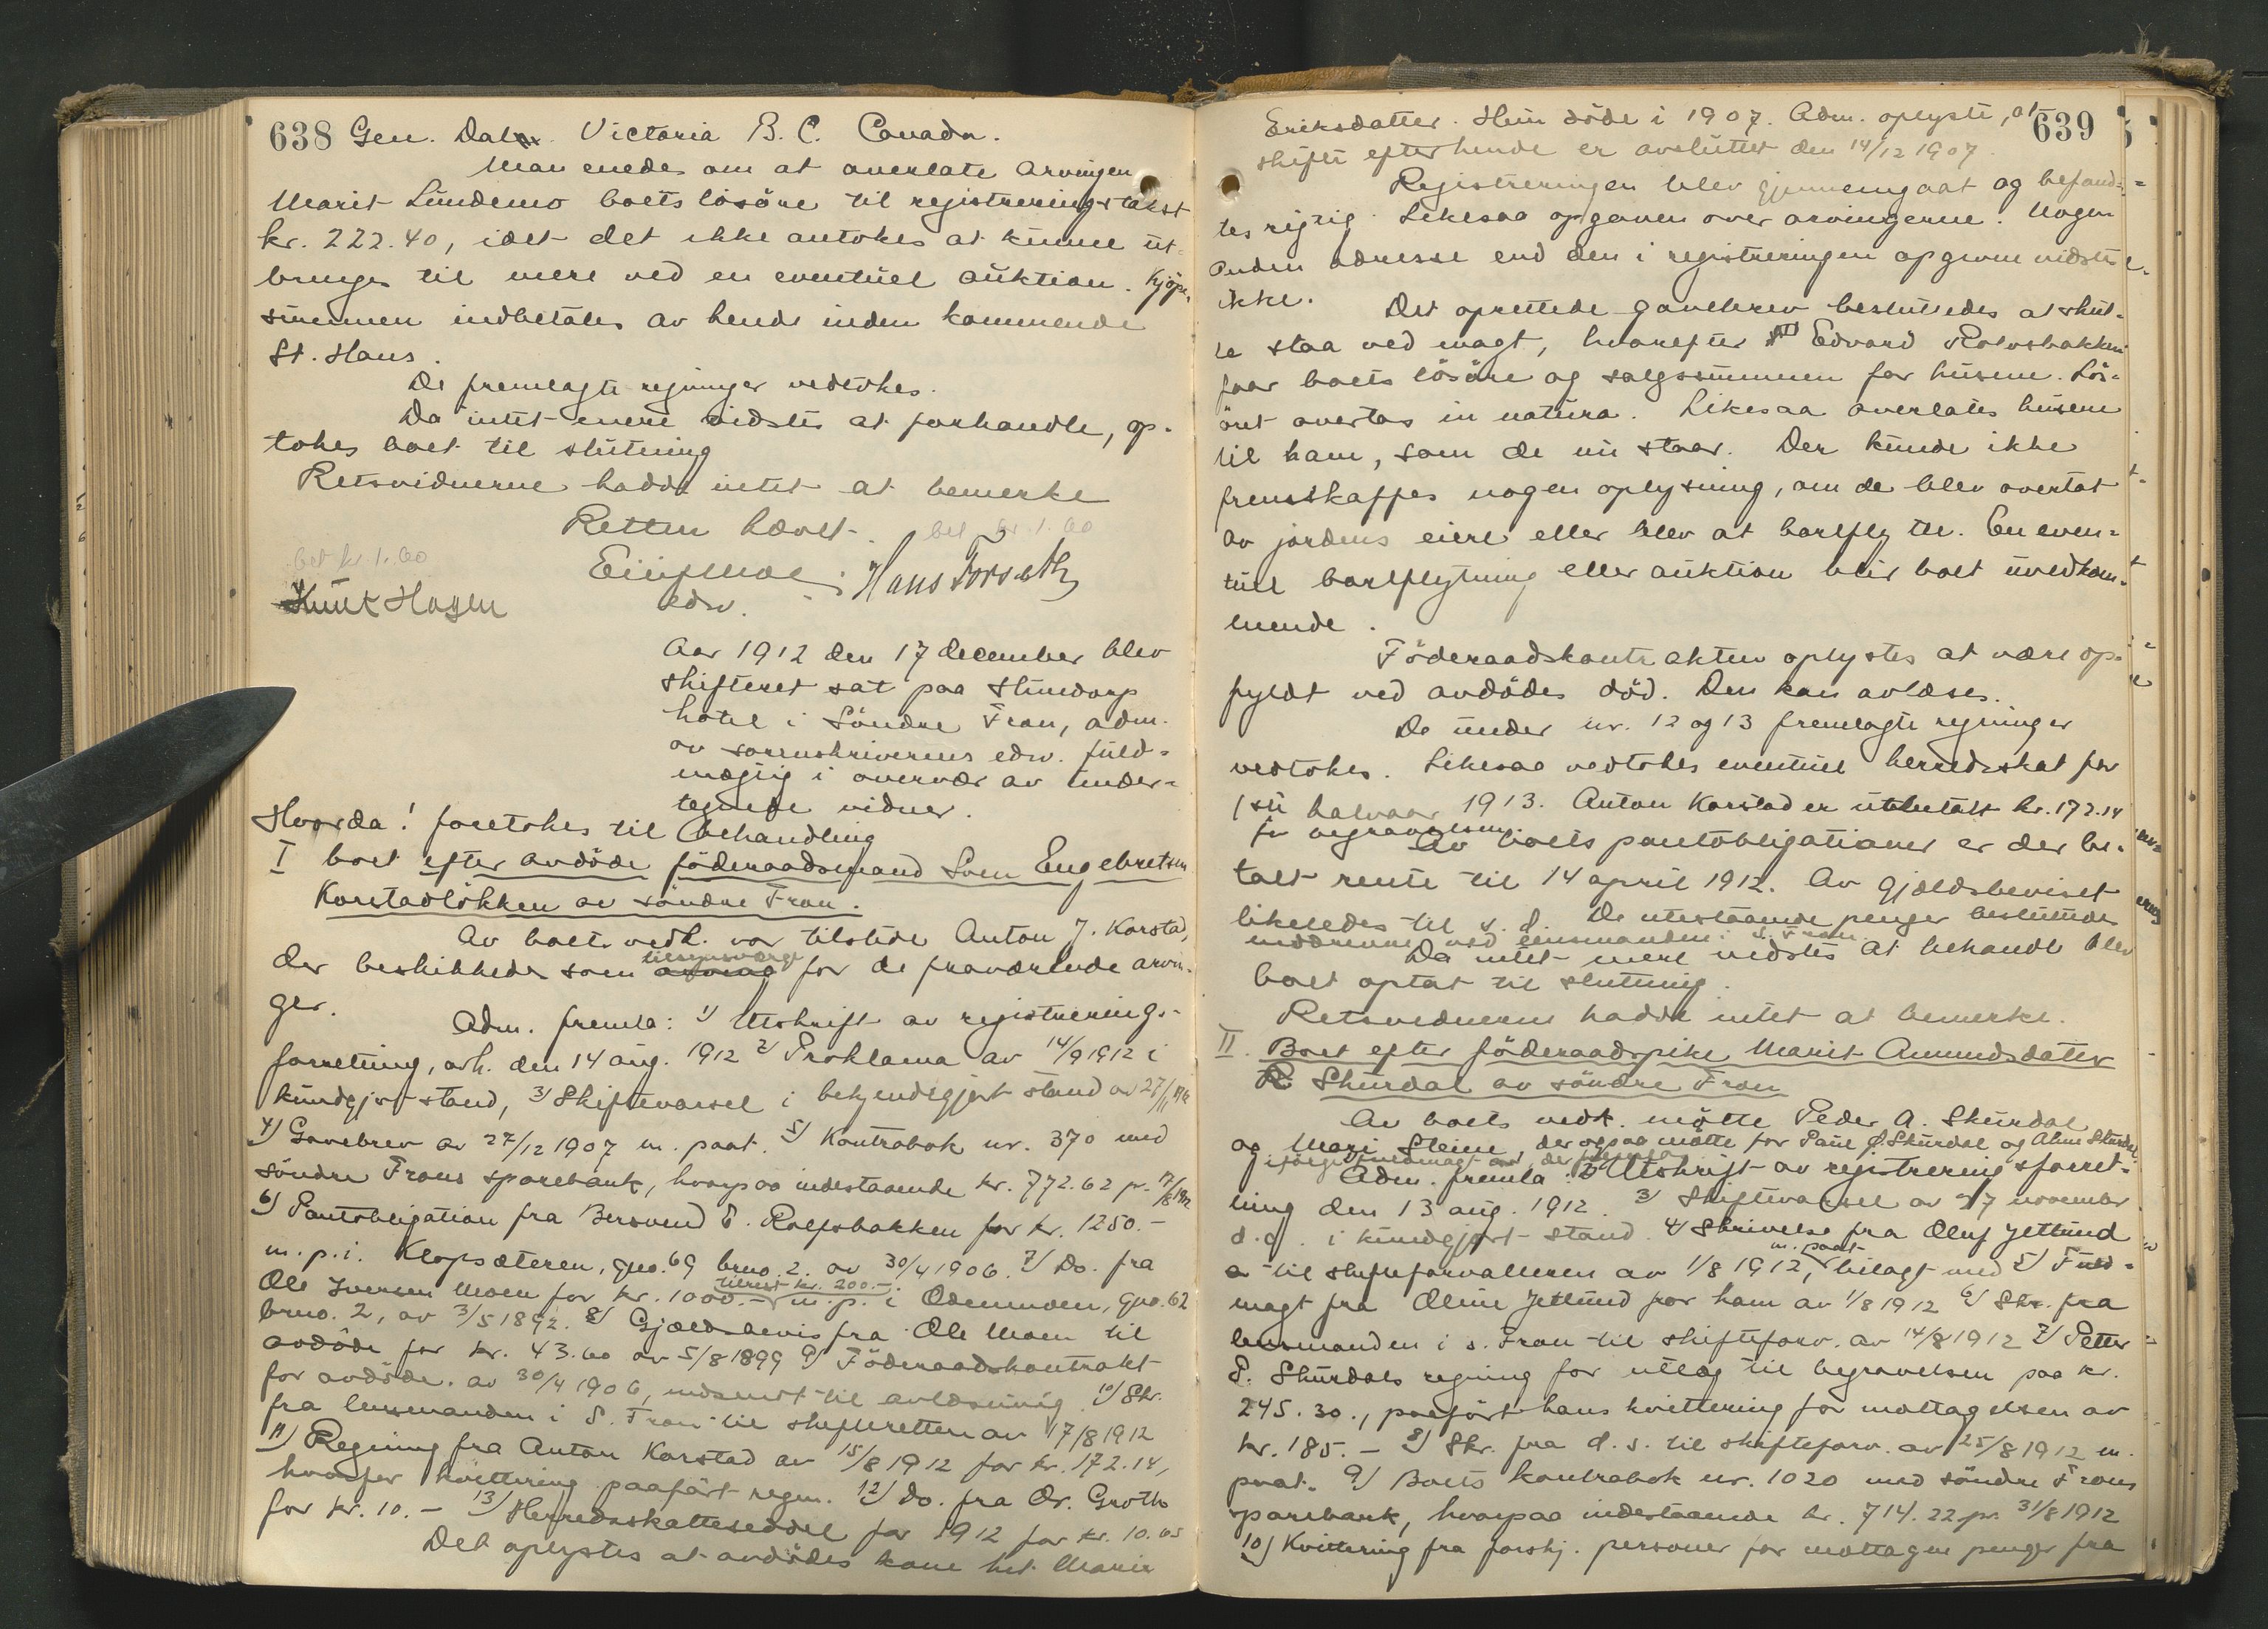 638 Gen. Dal. Victoria B. C. Canada.
Man enedes om at overlate arvingen
Marit Lundemo boets lösöre til registreringstakst
kr. 222.40, idet det ikke antokes at kunne ut-
bringes til mere ved en eventuel auktion. Kjöpe-
summen indbetales av hende inden kommende
St. Hans.
De fremlagte regninger vedtokes.
Da intet mere vidstes at forhandle, op-
tokes boet til slutning
Retsvidnerne hadde intet at bemerke
Retten hævet. bet kr. 1.60
bet kr. 1.60
Hans Forseth
Knut Hagen edsv.
Aar 1912 den 17 december blev
skifteret sat paa Hundorp
hotel i Söndre Fron, adm.
av sorenskriverens edsv. fuld-
mægtig i overvær av under-
tegnede vidner.
Hvorda! foretokes til behandling
I boet efter avdöde föderaadsmand Sven Engebretsen
Korstadlökken av söndre Fron.
Av boets vedk. var tilstede Anton J. Korstad,
tilsynsværge
der beskikkedes som for de fraværende arvin-
ger.
Adm. fremla: 1) Utskrift av registrerings-
forretning, avh. den 14 aug. 1912 2) Proklama av 14/9 1912 i
kundgjort stand, 3) Skiftevarsel i bekjendtgjort stand av 27/11
4) Gavebrev av 27/12 1907 m. paat. 5) Kontrabok nr. 370 med
söndre Frons sparebank, hvorpaa indestaaende kr. 772.62 pr. 17/8 1912
6) Pantobligation fra Bersvend E. Rolfsbakken for kr. 1250.-
m. p. i. Klopsæteren, gno. 69 brno. 2. av 30/4 1906. 7) Do. fra
tilrest kr. 200.-
Ole Iversen Moen for kr. 1000.- m. p. i Ödemoen, gno. 62
brno. 2, av 3/5 1892. 8) Gjældsbevis fra Ole Moen til
avdöde for kr. 43.60 av 5/8 1899 9) Föderaadskontrakt
for avdöde av 30/4 1906, indsendt til avlæsning. 10) Skr.
fra lensmanden i S. Fron til skifteretten av 17/8 1912
11) Regning fra Anton Korstad av 15/8 1912 for kr. 172.14,
hvorfor kvittering paafört regn. 12) Do. fra Dr. Groth
for kr. 10.- 13) Herredsskatteseddel for 1912 for kr. 10.05
Det oplystes at avdödes kone het Marit
639
Eriksdatter. Hun döde i 1907. Adm. oplyste, at
skifte efter hende er avsluttet den 14/12 1907.
Registreringen blev gjennemgaat og befand-
tes rigtig. Likesaa opgaven over arvingerne. Nogen
anden adresse end den i registreringen opgivne vidstes
ikke.
Det oprettede gavebrev besluttedes at skul-
le staa ved magt, hvorefter Edvard Rolvsbakken
faar boets lösöre og salgssummen for husene. Lös-
öret overtas in natura. Likesaa overlates husene
til ham, som de nu staar. Der kunde ikke
fremskaffes nogen oplysning, om de blev overtat
av jordens eiere eller blev at bortflytte. En even-
tuel bortflytning eller auktion blir boet uvedkom-
mende.
Föderaadskontrakten oplystes at være op-
fyldt ved avdödes död. Den kan avlæses.
De under nr. 12 og 13 fremlagte regninger
vedtokes. Likesaa vedtokes eventuel herredsskat for
1ste halvaar 1913. Anton Korstad er utbetalt kr. 172.14
for begravelsen
Av boets pantobligationer er der be-
talt rente til 14 april 1912. Av gjældsbeviset
likeledes til s. d. De utestaaende penger besluttedes
inddrevne ved lensmanden i S. Fron.
Da intet mere vidstes at behandle blev
boet optat til slutning.
Retsvidnerne hadde intet at bemerke.
II. Boet efter föderaadspike Marit Amundsdatter
Skurdal av söndre Fron
Av boets vedk. mötte Peder A. Skurdal
og Mari Steine der ogsaa mötte for Paul Skurdal og
ifölge fuldmagt
Adm. fremla: 2) Utskrift av registreringsforret-
ning den 13 aug. 1912. 3) Skiftevarsel av 27 november
d. a. i kundgjort stand. 4) Skrivelse fra Oluf Jetlund
m. paat
til skifteforvalteren av 1/8 1912, bilagt med 5) Fuld-
magt fra Oline Jetlund for ham av 1/8 1912 6) Skr. fra
lensmanden i s. Fron til skifteforv. av 14/8 1912 7) Petter
P. Skurdals regning for utlæg til begravelsen paa kr.
245.30., paafört hans kvittering for mottagelsen av
kr. 185.- 8) Skr. fra d. s. til skifteforv. av 25/8 1912 m.
paat. 9) Boets kontrabok nr. 1020 med söndre Frons
sparebank, hvorpaa indestaaende kr. 714.22 pr. 31/8 1912
10) Kvittering fra forskj. personer for mottagne penger fra